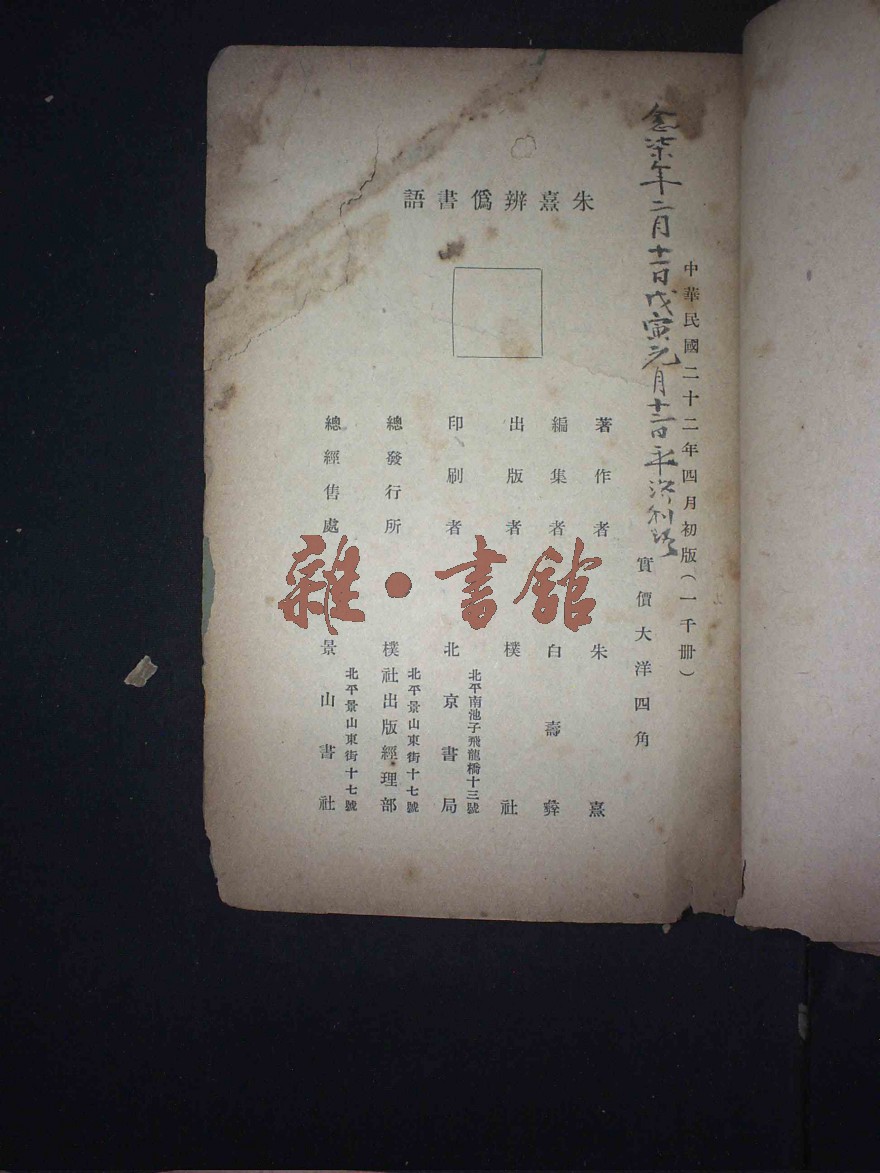 中華民國二十二年四月初版(一千册)
念柒年二月十一日戊寅元月十二日
實價大洋四角
朱熹辨僞書語
著作者 朱熹
編集者 白壽彝
出版者 樸社
印刷者 北京書局
北平南池子飛龍橋十三號
總發行所 樸社出版經理部
北平景山東街十七號
總經售處 景山書社
北平景山東街十七號
雜·書館